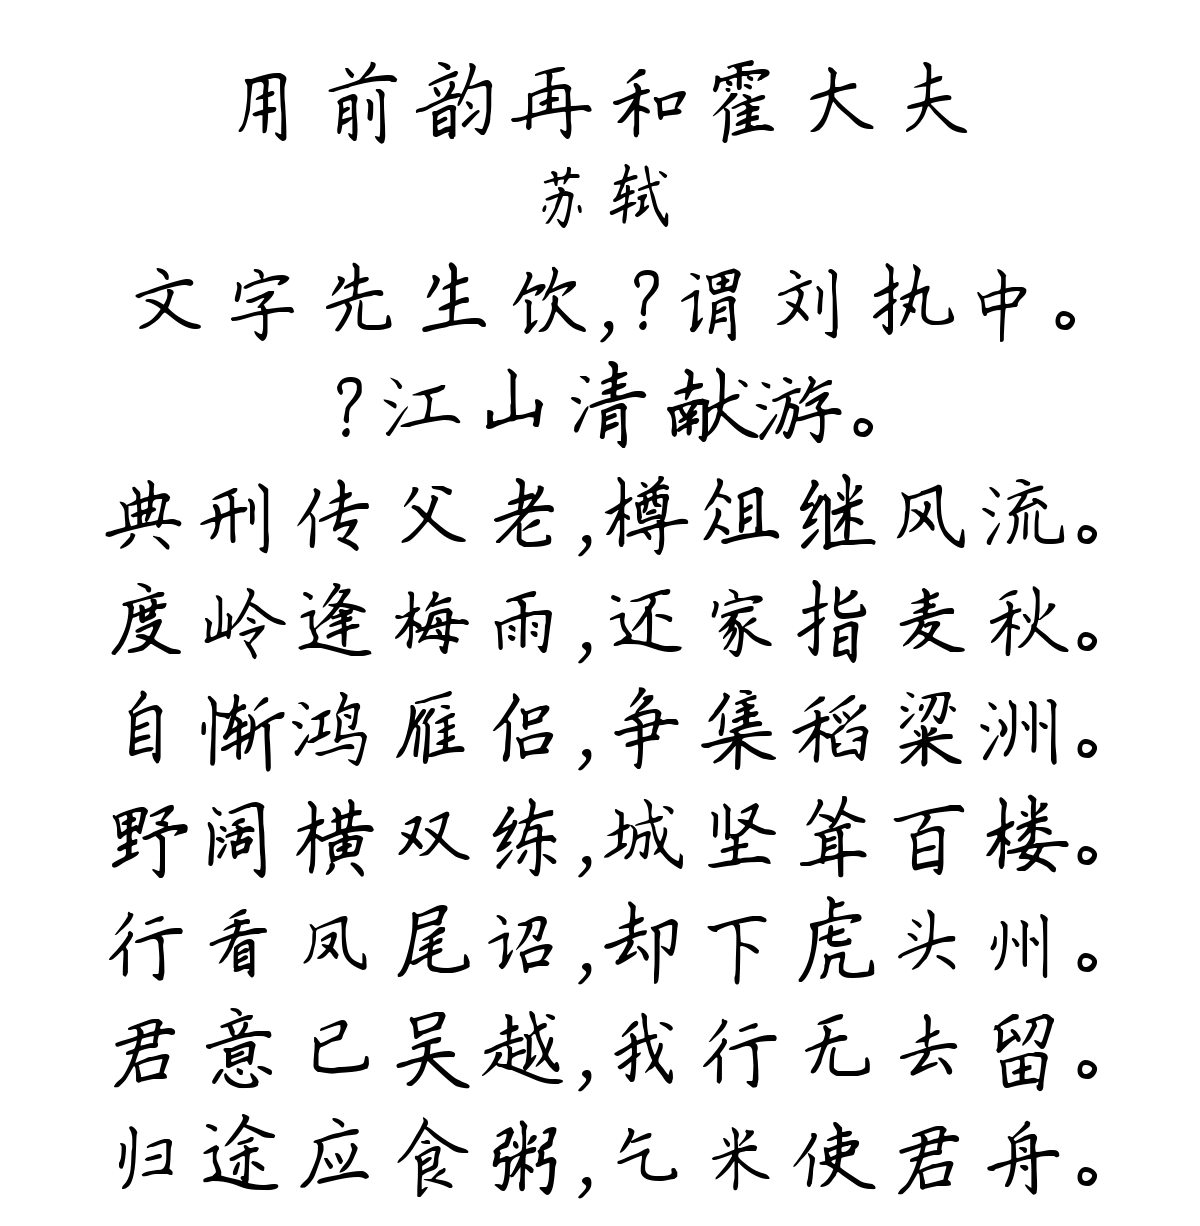 用前韵再和霍大夫
苏轼
文字先生饮,?谓刘执中。
?江山清献游。
典刑传父老,樽俎继风流。
度岭逢梅雨,还家指麦秋。
自惭鸿雁侣,争集稻粱洲。
野阔横双练,城坚耸百楼。
行看凤尾诏,却下虎头州。
君意已吴越,我行无去留。
归途应食粥,乞米使君舟。